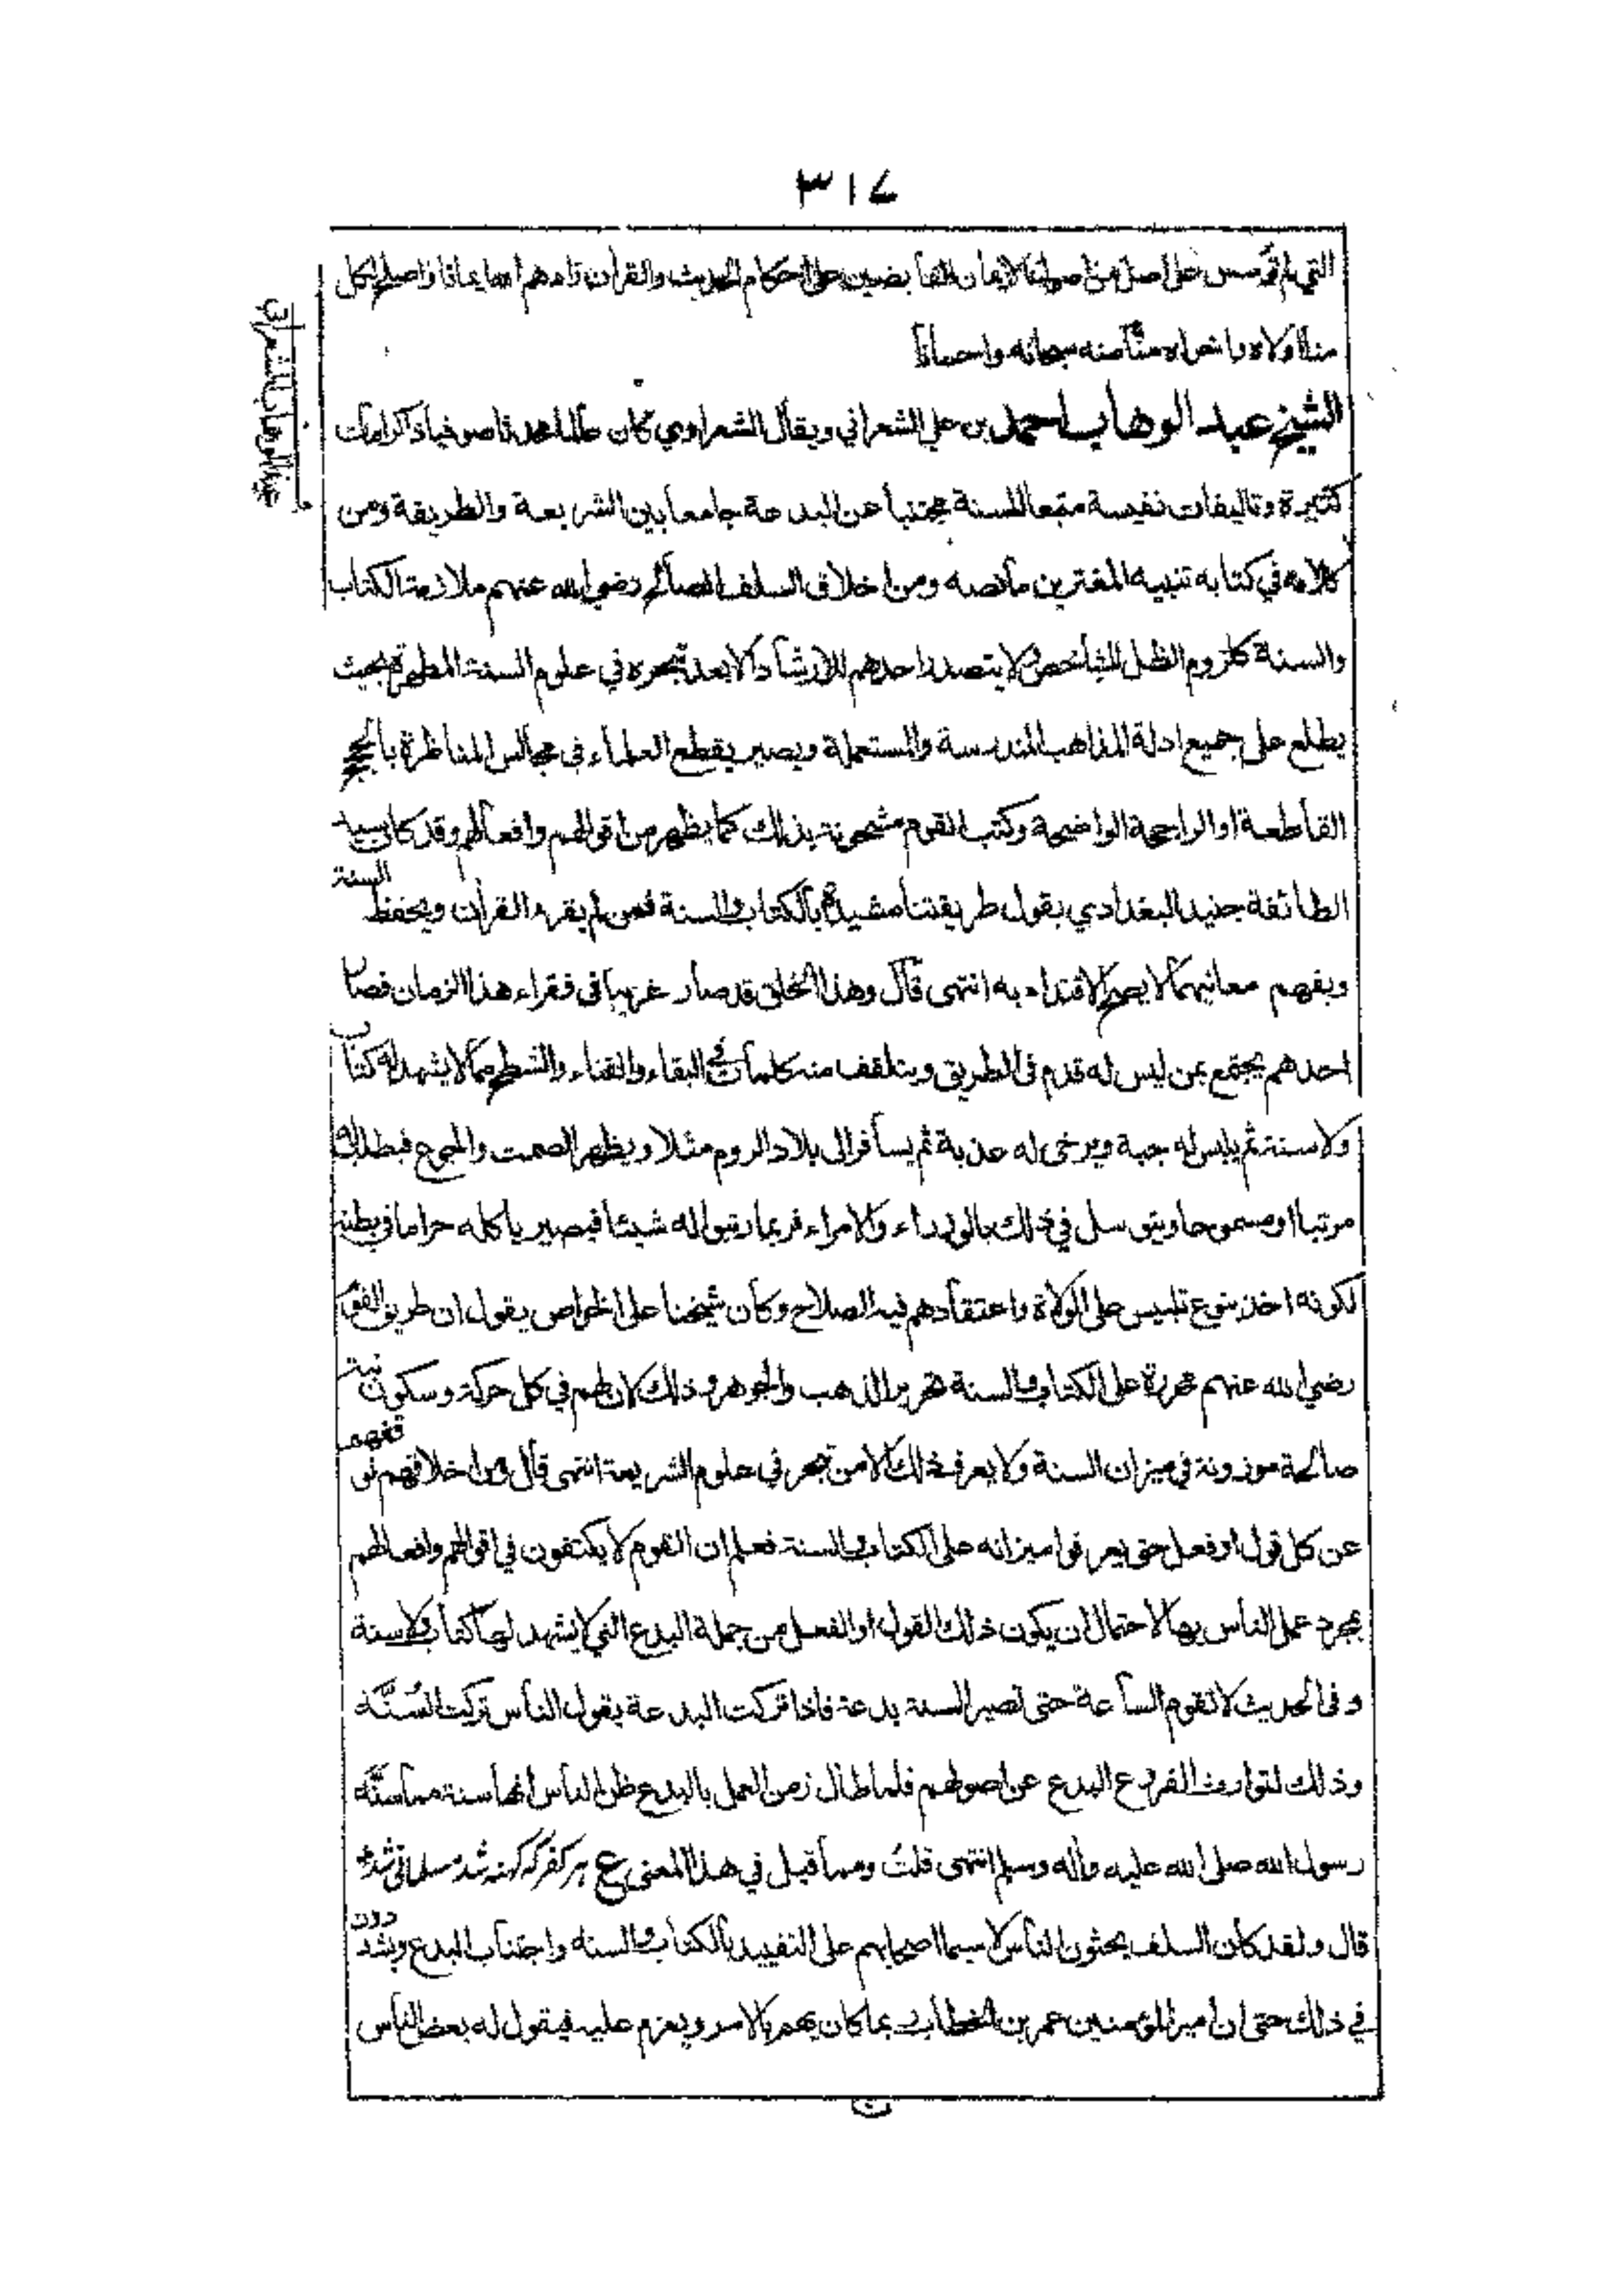 ٣١٤
التي لم تؤسس على اصل من اصول الايمان القابضين على احكام الحديث والقرآن زادهم الله ايمانا واصلح لكل
منا اولاه واخراه منّاً منه سبحانه واحساناً
عبد الوهاب الشعراني
الشيخ عبد الوهاب احمد بن علي الشعراني ويقال الشعراوي كان عالما محدثا صوفيا ذا كرامات
كثيرة وتاليفات نفيسة متبعا للسنة مجتنبا عن البدعة جامعا بين الشريعة والطريقة ومن
كلامه في كتابه تنبيه المغترين ما نصه ومن اخلاق السلف الصالح رضي الله عنهم ملازمة الكتاب
والسنة كلزوم الظل للشاخص ولا يتصدر احدهم للارشاد الا بعد تبحره في علوم السنة المطهرة بحيث
يطلع على جميع ادلة المذاهب المندرسة والمستعملة ويصير يقطع العلماء في مجالس المناظرة بالحجج
القاطعة او الراجحة الواضحة وكتب القوم مشحونة بذلك كما يظهر من اقوالهم وافعالهم وقد كان سيد
الطائفة جنيد البغدادي يقول طريقتنا مشيدة بالكتاب والسنة فمن لم يقرء القرآن ويحفظ السنة
ويفهم معانيهما لا يصح الاقتداء به انتهى قال وهذا الخلق قد صار غريبا في فقراء هذا الزمان فصار
احدهم يجتمع بمن ليس له قدم في الطريق ويتلقف منه كلمات في البقاء والفناء والشطح مما لا يشهد له كتاب
ولا سنة ثم يلبس له جبة ويرخى له عذبة ثم يسافر الى بلاد الروم مثلا ويظهر الصمت والجوع فيطلب له
مرتبا او مسموحا ويتوسل في ذلك بالوزراء والامراء فربما رتبوا له شيئا فيصير ياكله حراما في بطنه
لكونه اخذ بنوع تلبيس على الولاة واعتقادهم فيه الصلاح وكان شيخنا علي الخواص يقول ان طريق القوم
رضي الله عنهم محررة على الكتاب والسنة تحرير الذهب والجوهر وذلك لان لهم في كل حركة وسكون نية
صالحة موزونة في ميزان السنة ولا يعرف ذلك الا من تبحر في علوم الشريعة انتهى قال ومن اخلاقهم توقفهم
عن كل قول او فعل حتى يعرفوا ميزانه على الكتاب والسنة فعلم ان القوم لا يكتفون في اقوالهم وافعالهم
بمجرد عمل الناس بها لاحتمال ان يكون ذلك القول او الفعل من جملة البدع التي لا يشهد لها كتاب ولا سنة
وفي الحديث لا تقوم الساعة حتى تصير السنة بدعة فاذا تركت البدعة يقول الناس تركت السُنَّة
وذلك لتوارث الفروع البدع عن اصولهم فلما طال زمن العمل بالبدع ظن الناس انها سنة مما سنَّه
رسول الله صلى الله عليه وآله وسلم انتهى قلتُ ومما قيل في هذا المعنى ع هر كفر كه كهنه شد مسلماني شد
قال ولقد كان السلف يحثون الناس لا سيما اصحابهم على التقييد بالكتاب والسنة واجتناب البدع ويشددون
في ذلك حتى ان امير المؤمنين عمر بن الخطاب ربما كان يهم بالامر ويعزم عليه فيقول له بعض الناس